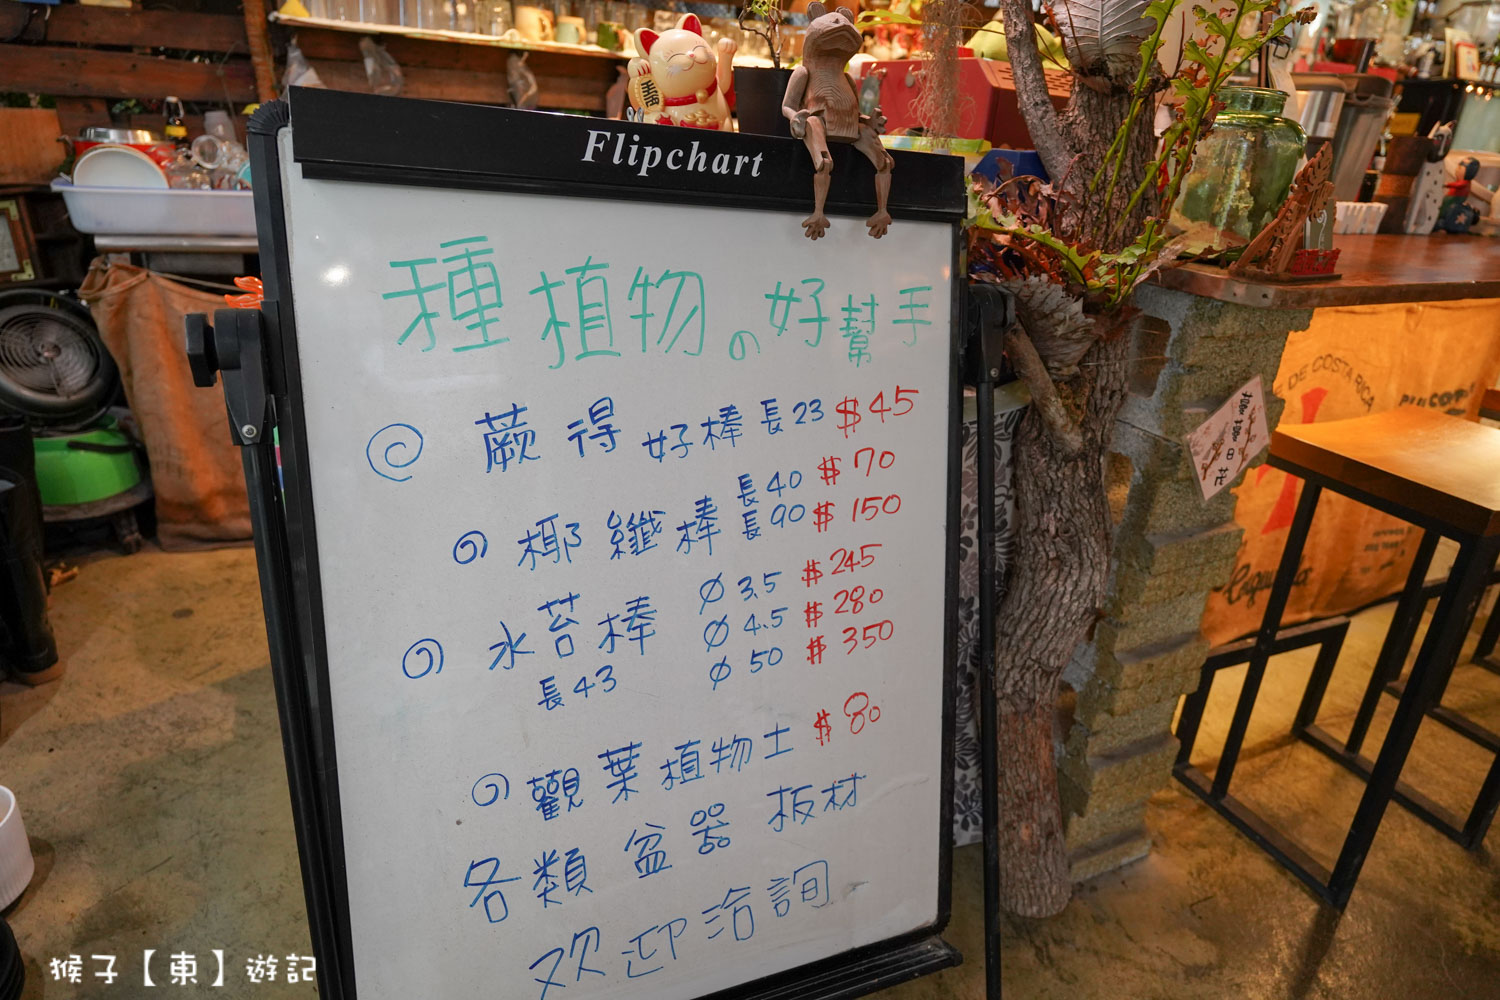 Flipchart
種植物の好幫手
蕨得好棒 長23 $45
椰纖棒 長40 $70
長90 $150
水苔棒 ∅ 3.5 $245
∅ 4.5 $280
長43 ∅ 50 $350
觀葉植物土 $80
各類盆器 板材
欢迎洽詢
DE COSTA RICA
猴子【東】遊記